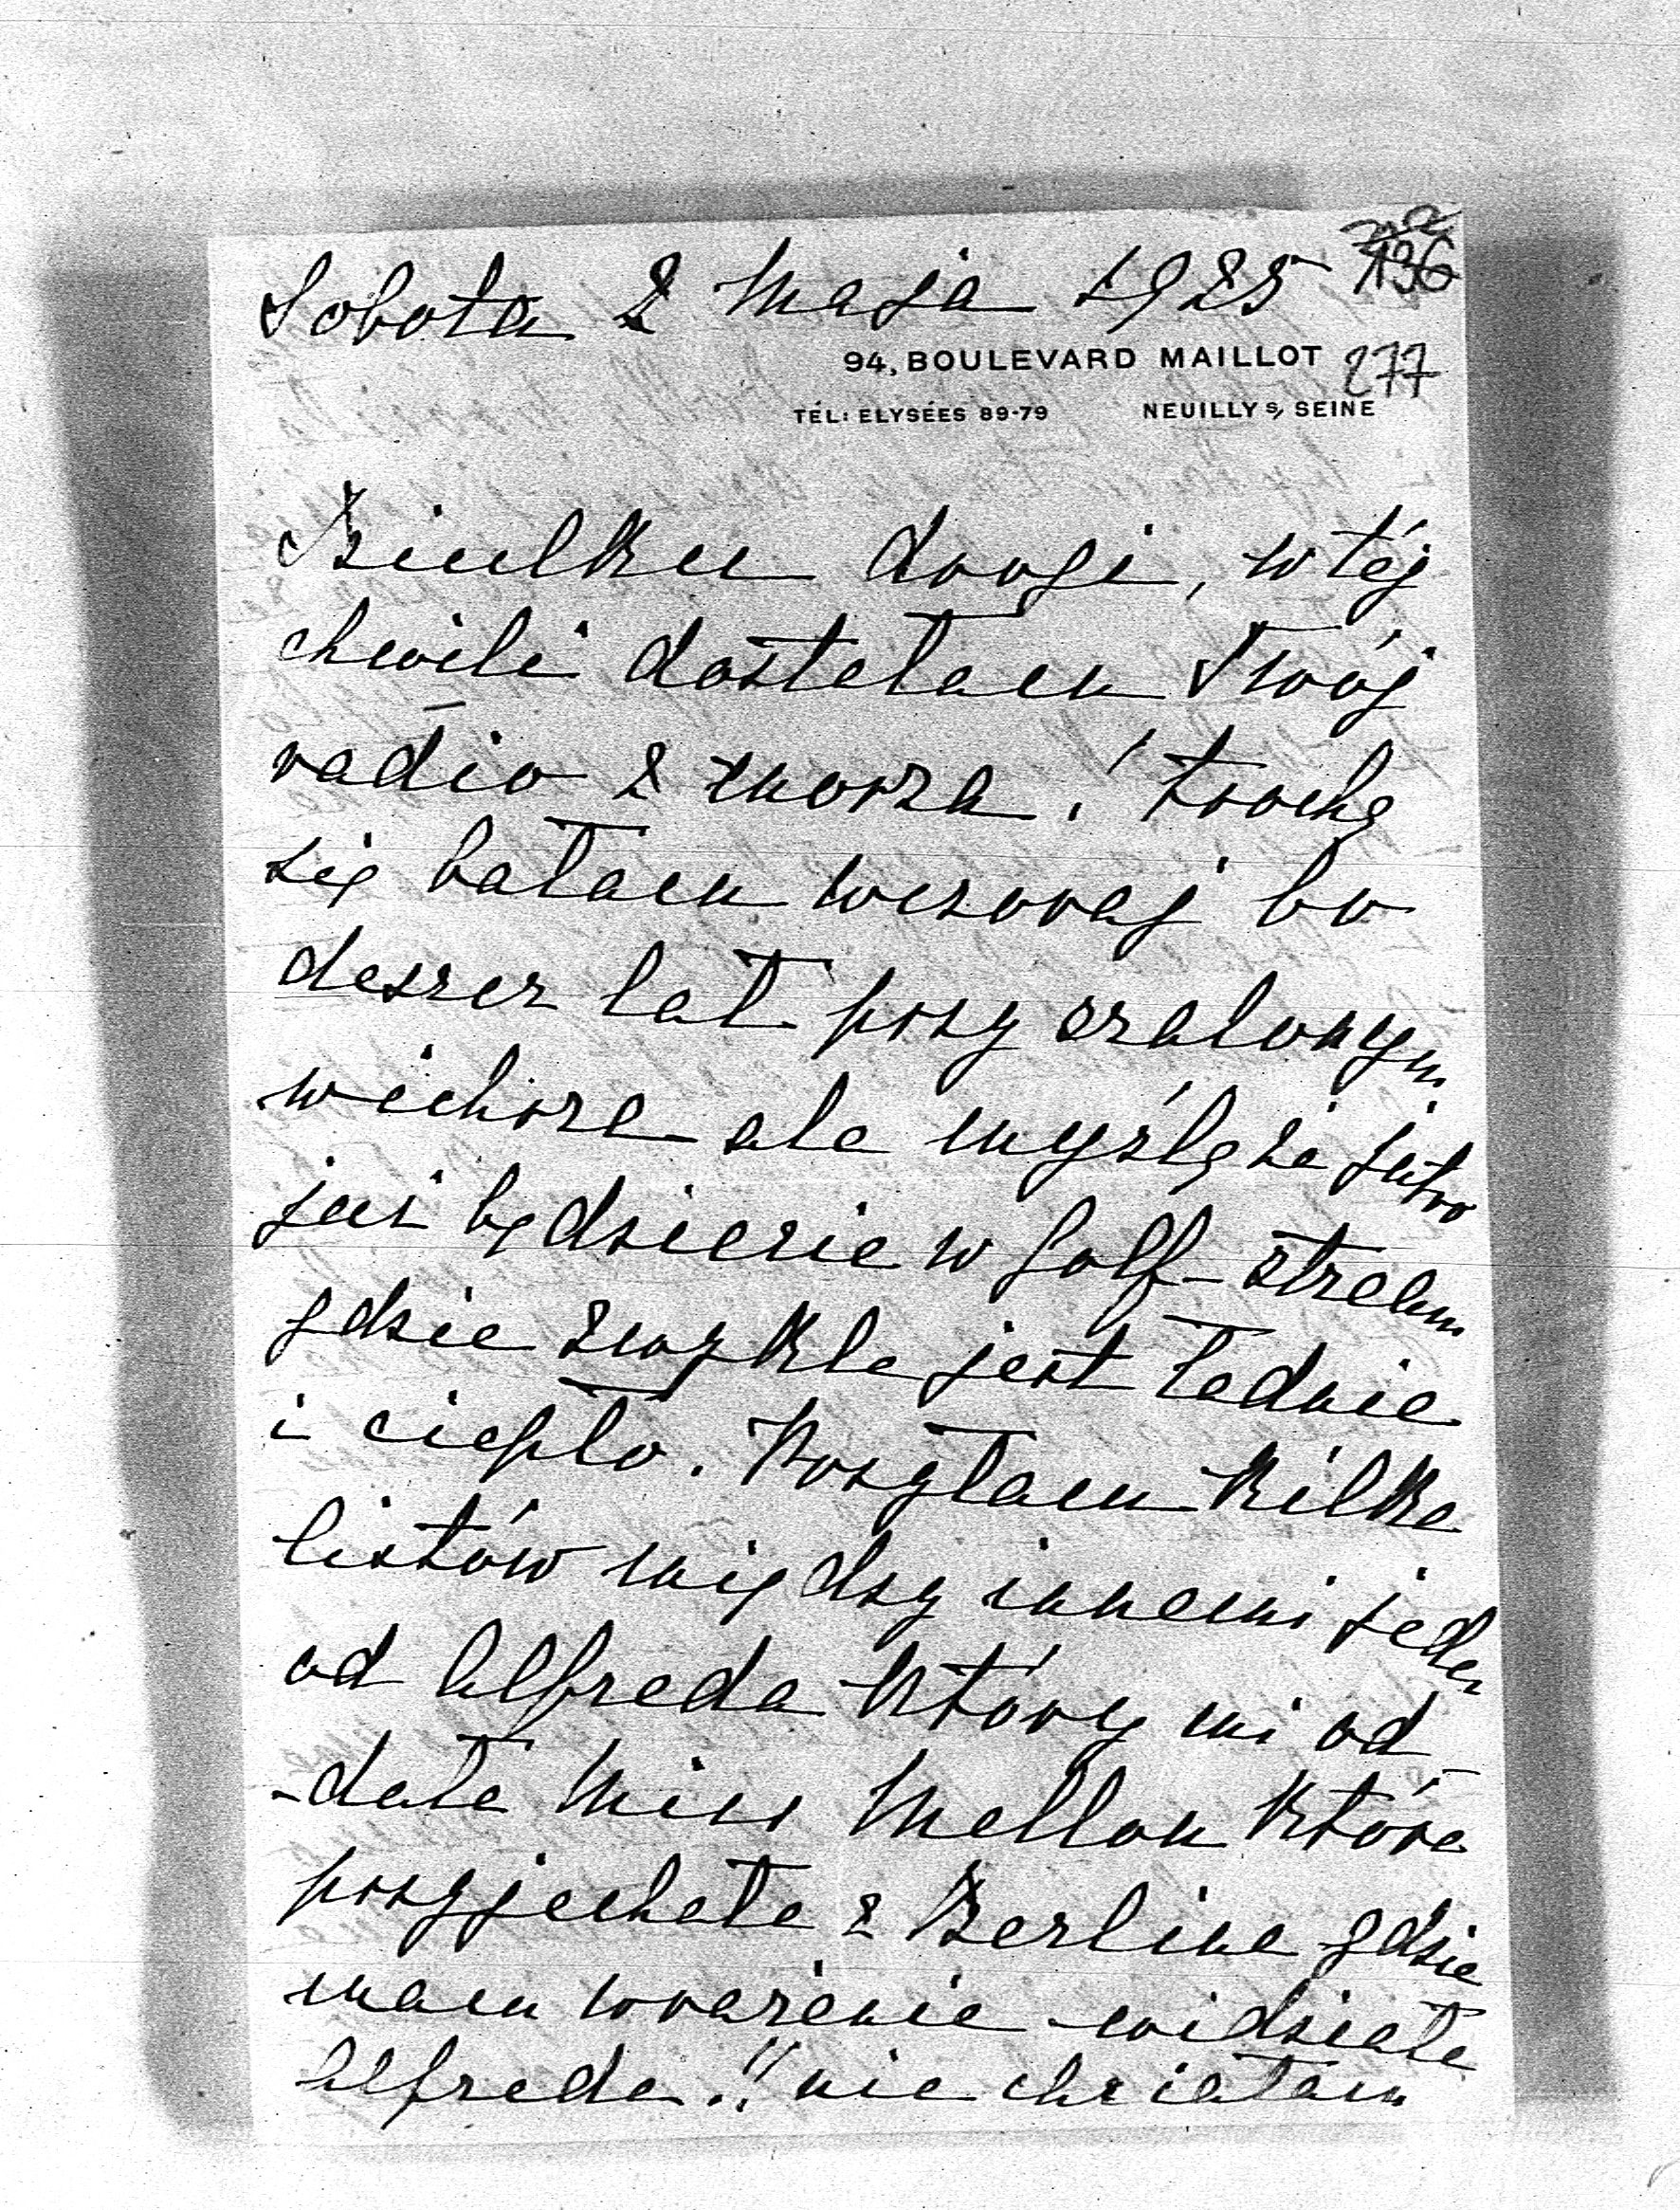 Sobota 2 Maja 1925
136
94, BOULEVARD MAILLOT 277
TÉL: ELYSÉES 89-79 NEUILLY S/ SEINE
Biulku drogi, w téj
chwili dostałam Twój
radio z morza! trochę
się bałam wczoraj bo
deszcz lał przy szalonym
wichrze ale myślę że jutro
już będziecie w Golf-stream
gdzie zwykle jest ładnie
i ciepło. Posyłam kilka
listów między innemi jeden
od Alfreda który mi od-
-dała Miss Mellon która
przyjechała z Berlina gdzie
mam wrażenie widziała
Alfreda!! nie chciałam